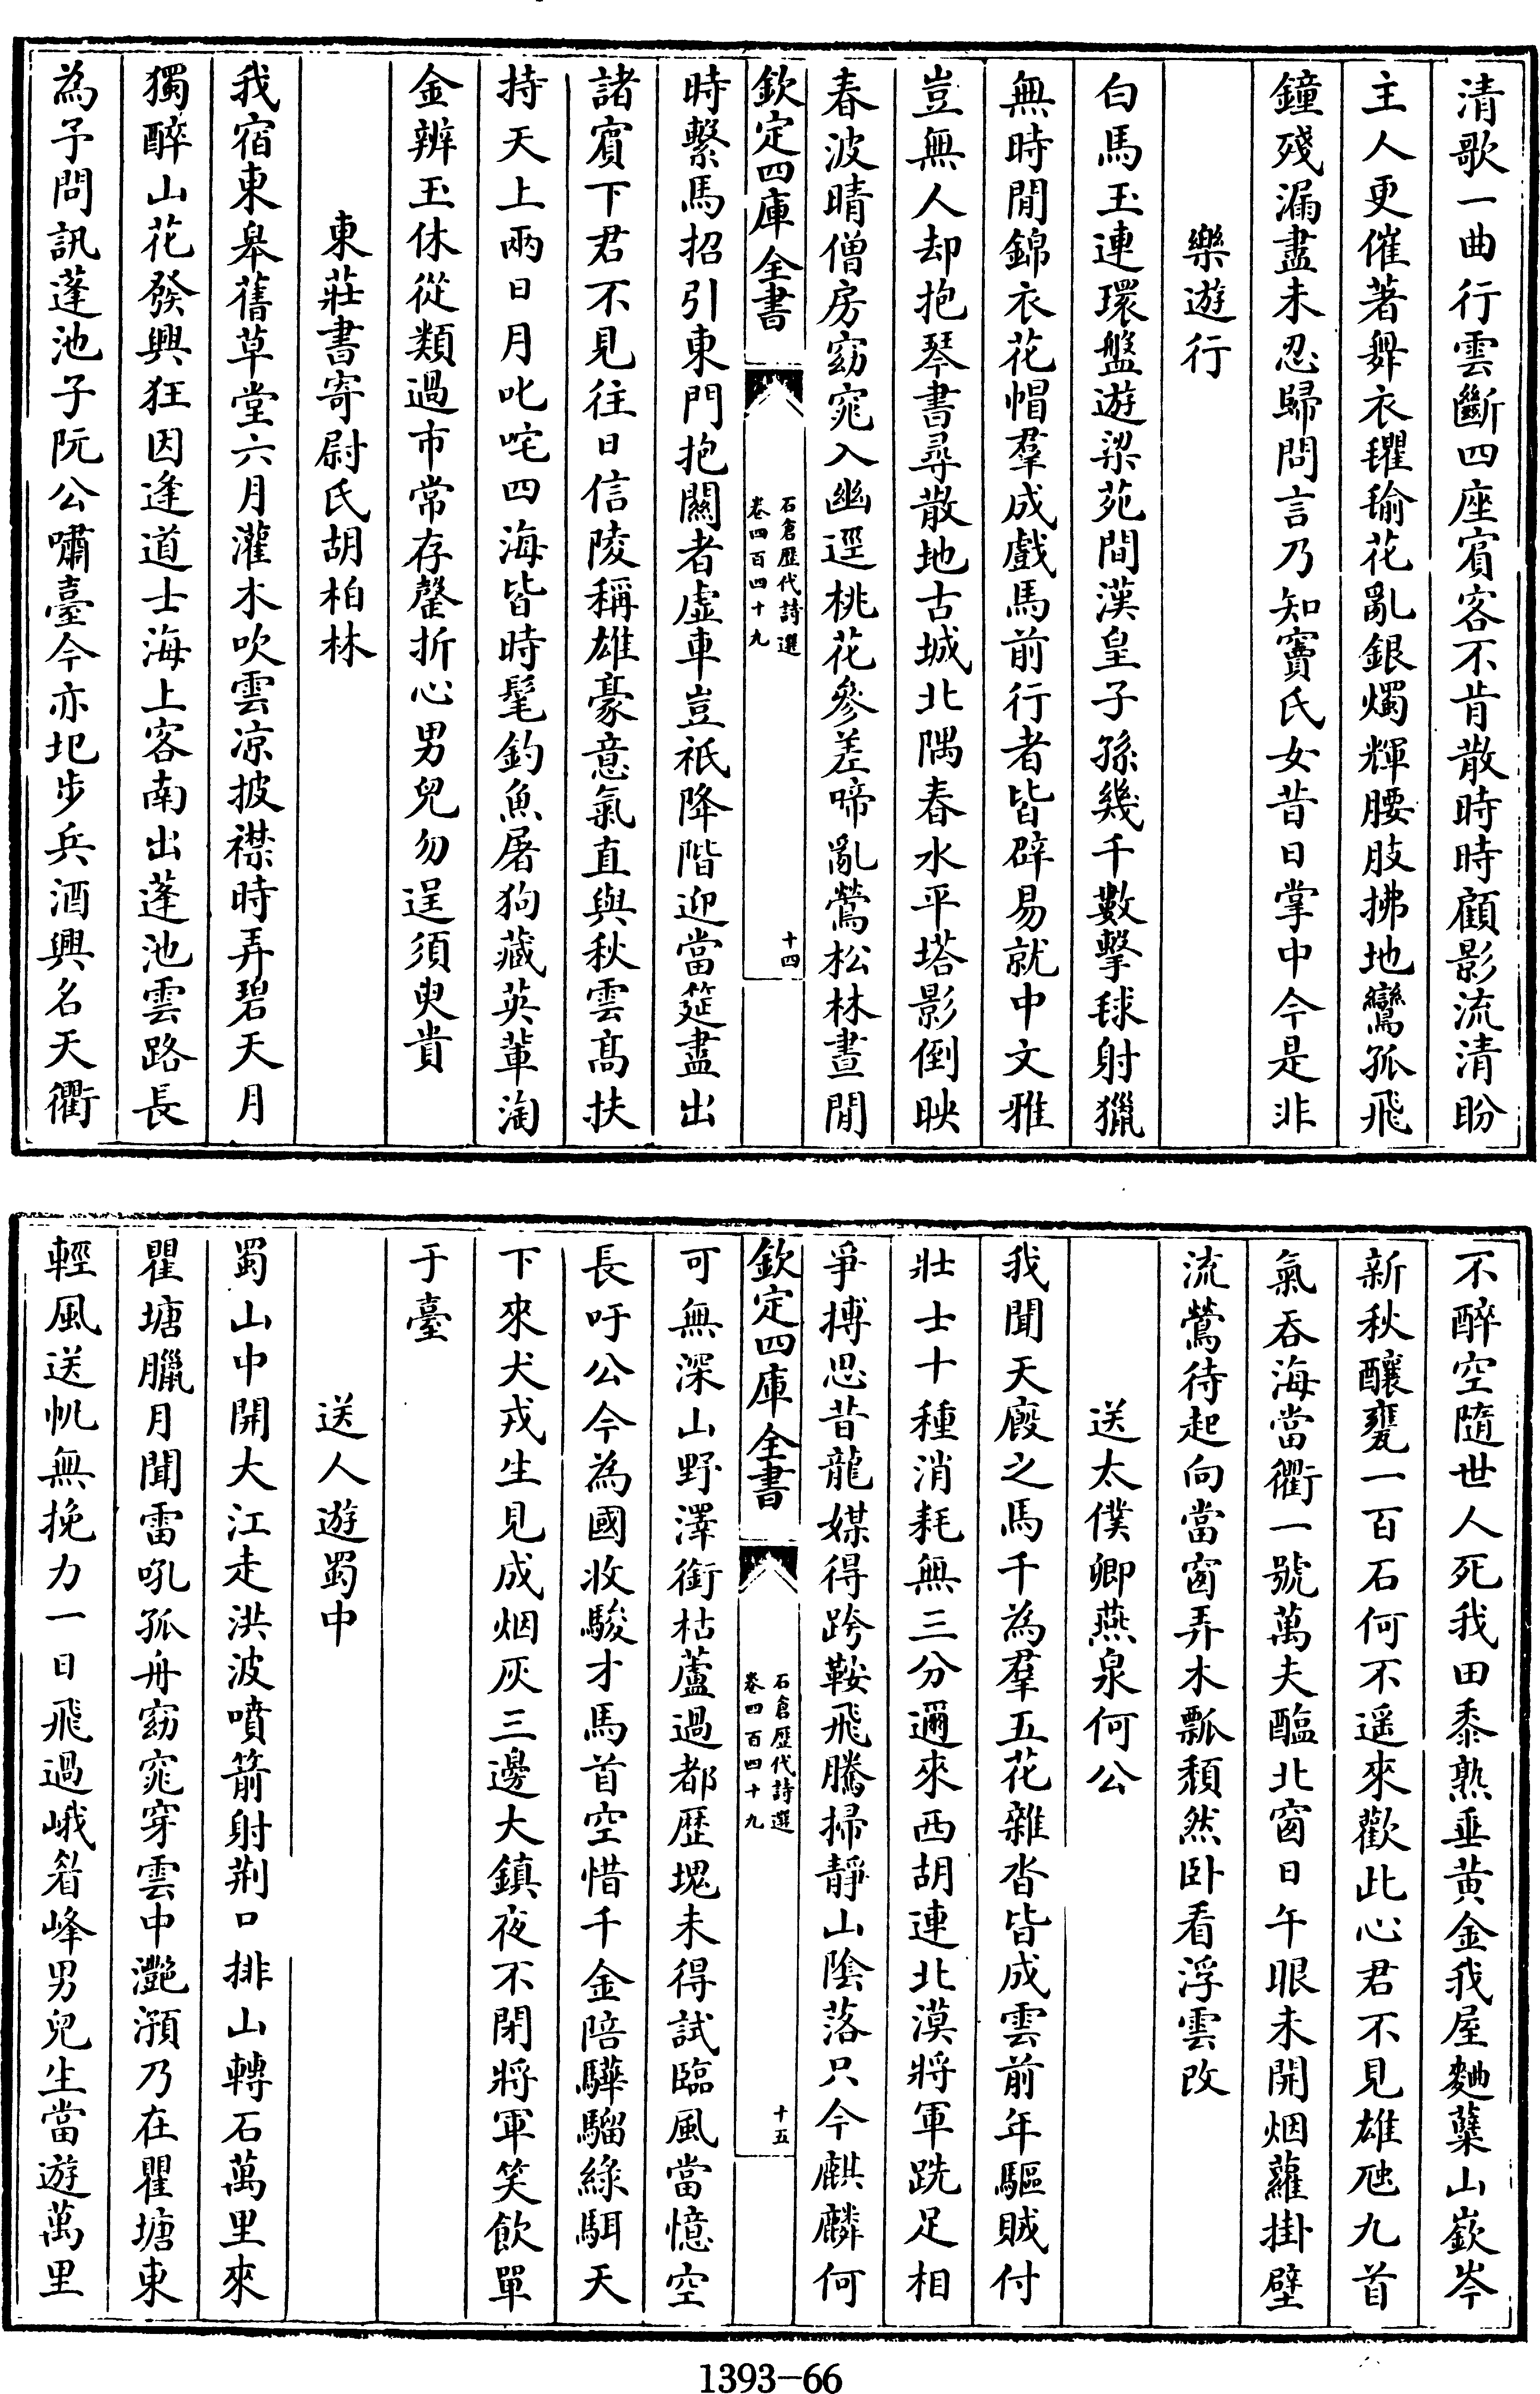 清歌一曲行雲斷四座賔客不肯散時時顧影流清盼
主人更催著舞衣㻿瑜花亂銀燭輝腰肢拂地鸞孤飛
鐘殘漏盡未忍歸問言乃知竇氏女昔日掌中今是非
樂遊行
白馬玉連環盤遊梁苑間漢皇子孫幾千數擊毬射獵
無時閒錦衣花帽羣成戲馬前行者皆辟易就中文雅
豈無人却抱琴書尋散地古城北隅春水平塔影倒映
春波晴僧房窈窕入幽逕桃花參差啼亂鶯松林晝閒
欽定四庫全書
石倉歷代詩選
卷四百四十九
十四
時繫馬招引東門抱關者虛車豈祇降階迎當筵盡出
諸賔下君不見往日信陵稱雄豪意氣直與秋雲髙扶
持天上兩日月叱咤四海皆時髦釣魚屠狗藏英輩淘
金辨玉休從類過市常存罄折心男兒勿逞須臾貴
東莊書寄尉氏胡柏林
我宿東皋舊草堂六月灌木吹雲凉披襟時弄碧天月
獨醉山花發興狂因逢道士海上客南出蓬池雲路長
為予問訊蓬池子阮公嘯臺今亦圯步兵酒興名天衢
不醉空隨世人死我田黍熟垂黄金我屋麯糵山嶔岑
新秋釀甕一百石何不遥來歡此心君不見雄虺九首
氣吞海當衢一號萬夫醢北窗日午眼未開烟蘿掛壁
流鶯待起向當窗弄木瓢頹然卧看浮雲改
送太僕卿燕泉何公
我聞天廄之馬千為羣五花雜沓皆成雲前年驅賊付
壯士十種消耗無三分邇來西胡連北漠將軍跣足相
爭搏思昔龍媒得跨鞍飛騰掃靜山隂落只今麒麟何
欽定四庫全書
石倉歷代詩選
卷四百四十九
十五
可無深山野澤銜枯蘆過都歴塊未得試臨風當憶空
長吁公今為國收駿才馬首空惜千金陪驊騮綠駬天
下來犬戎生見成烟灰三邊大鎮夜不閉將軍笑飲單
于臺
送人遊蜀中
蜀山中開大江走洪波噴箭射荆口排山轉石萬里來
瞿塘臘月聞雷吼孤舟窈窕穿雲中灔澦乃在瞿塘東
輕風送帆無挽力一日飛過峨眉峰男兒生當遊萬里
1393-66